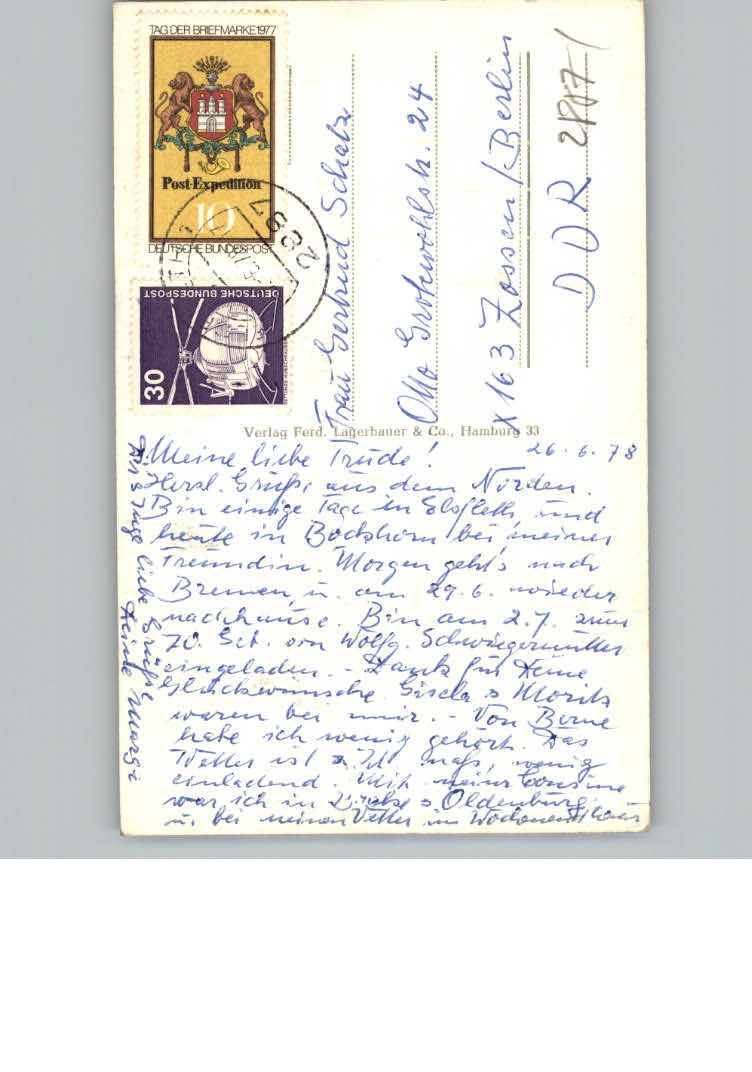 TAG DER BRIEFMARKE 1977
Post-Expedition
10
DEUTSCHE BUNDESPOST
DEUTSCHE BUNDESPOST
30
2887
Frau Gertrud Schatz
Otto Grotewohlstr. 24
X 163 Zossen / Berlin
DDR
Verlag Ferd. Lagerbauer & Co., Hamburg 33
26.6.78
Meine liebe Trude!
Herzl. Grüße aus dem Norden.
Bin einige Tage in Elsfleth und
heute in Bockhorn bei meiner
Freundin. Morgen geht's nach
Bremen u. am 29.6. wieder
nachhause. Bin am 2.7. zum
70. Geb. von Wolfg. Schwiegermutter
eingeladen. - Dank für Deine
Glückwünsche. Gisela & Moritz
waren bei mir. - Von Berne
habe ich wenig gehört. Das
Wetter ist z. Zt. naß, wenig
einladend. Mit meiner Cousine
war ich in & Oldenburg
u. bei meinem Vetter im Wochenendhaus
liebe Grüße
Deine Margi